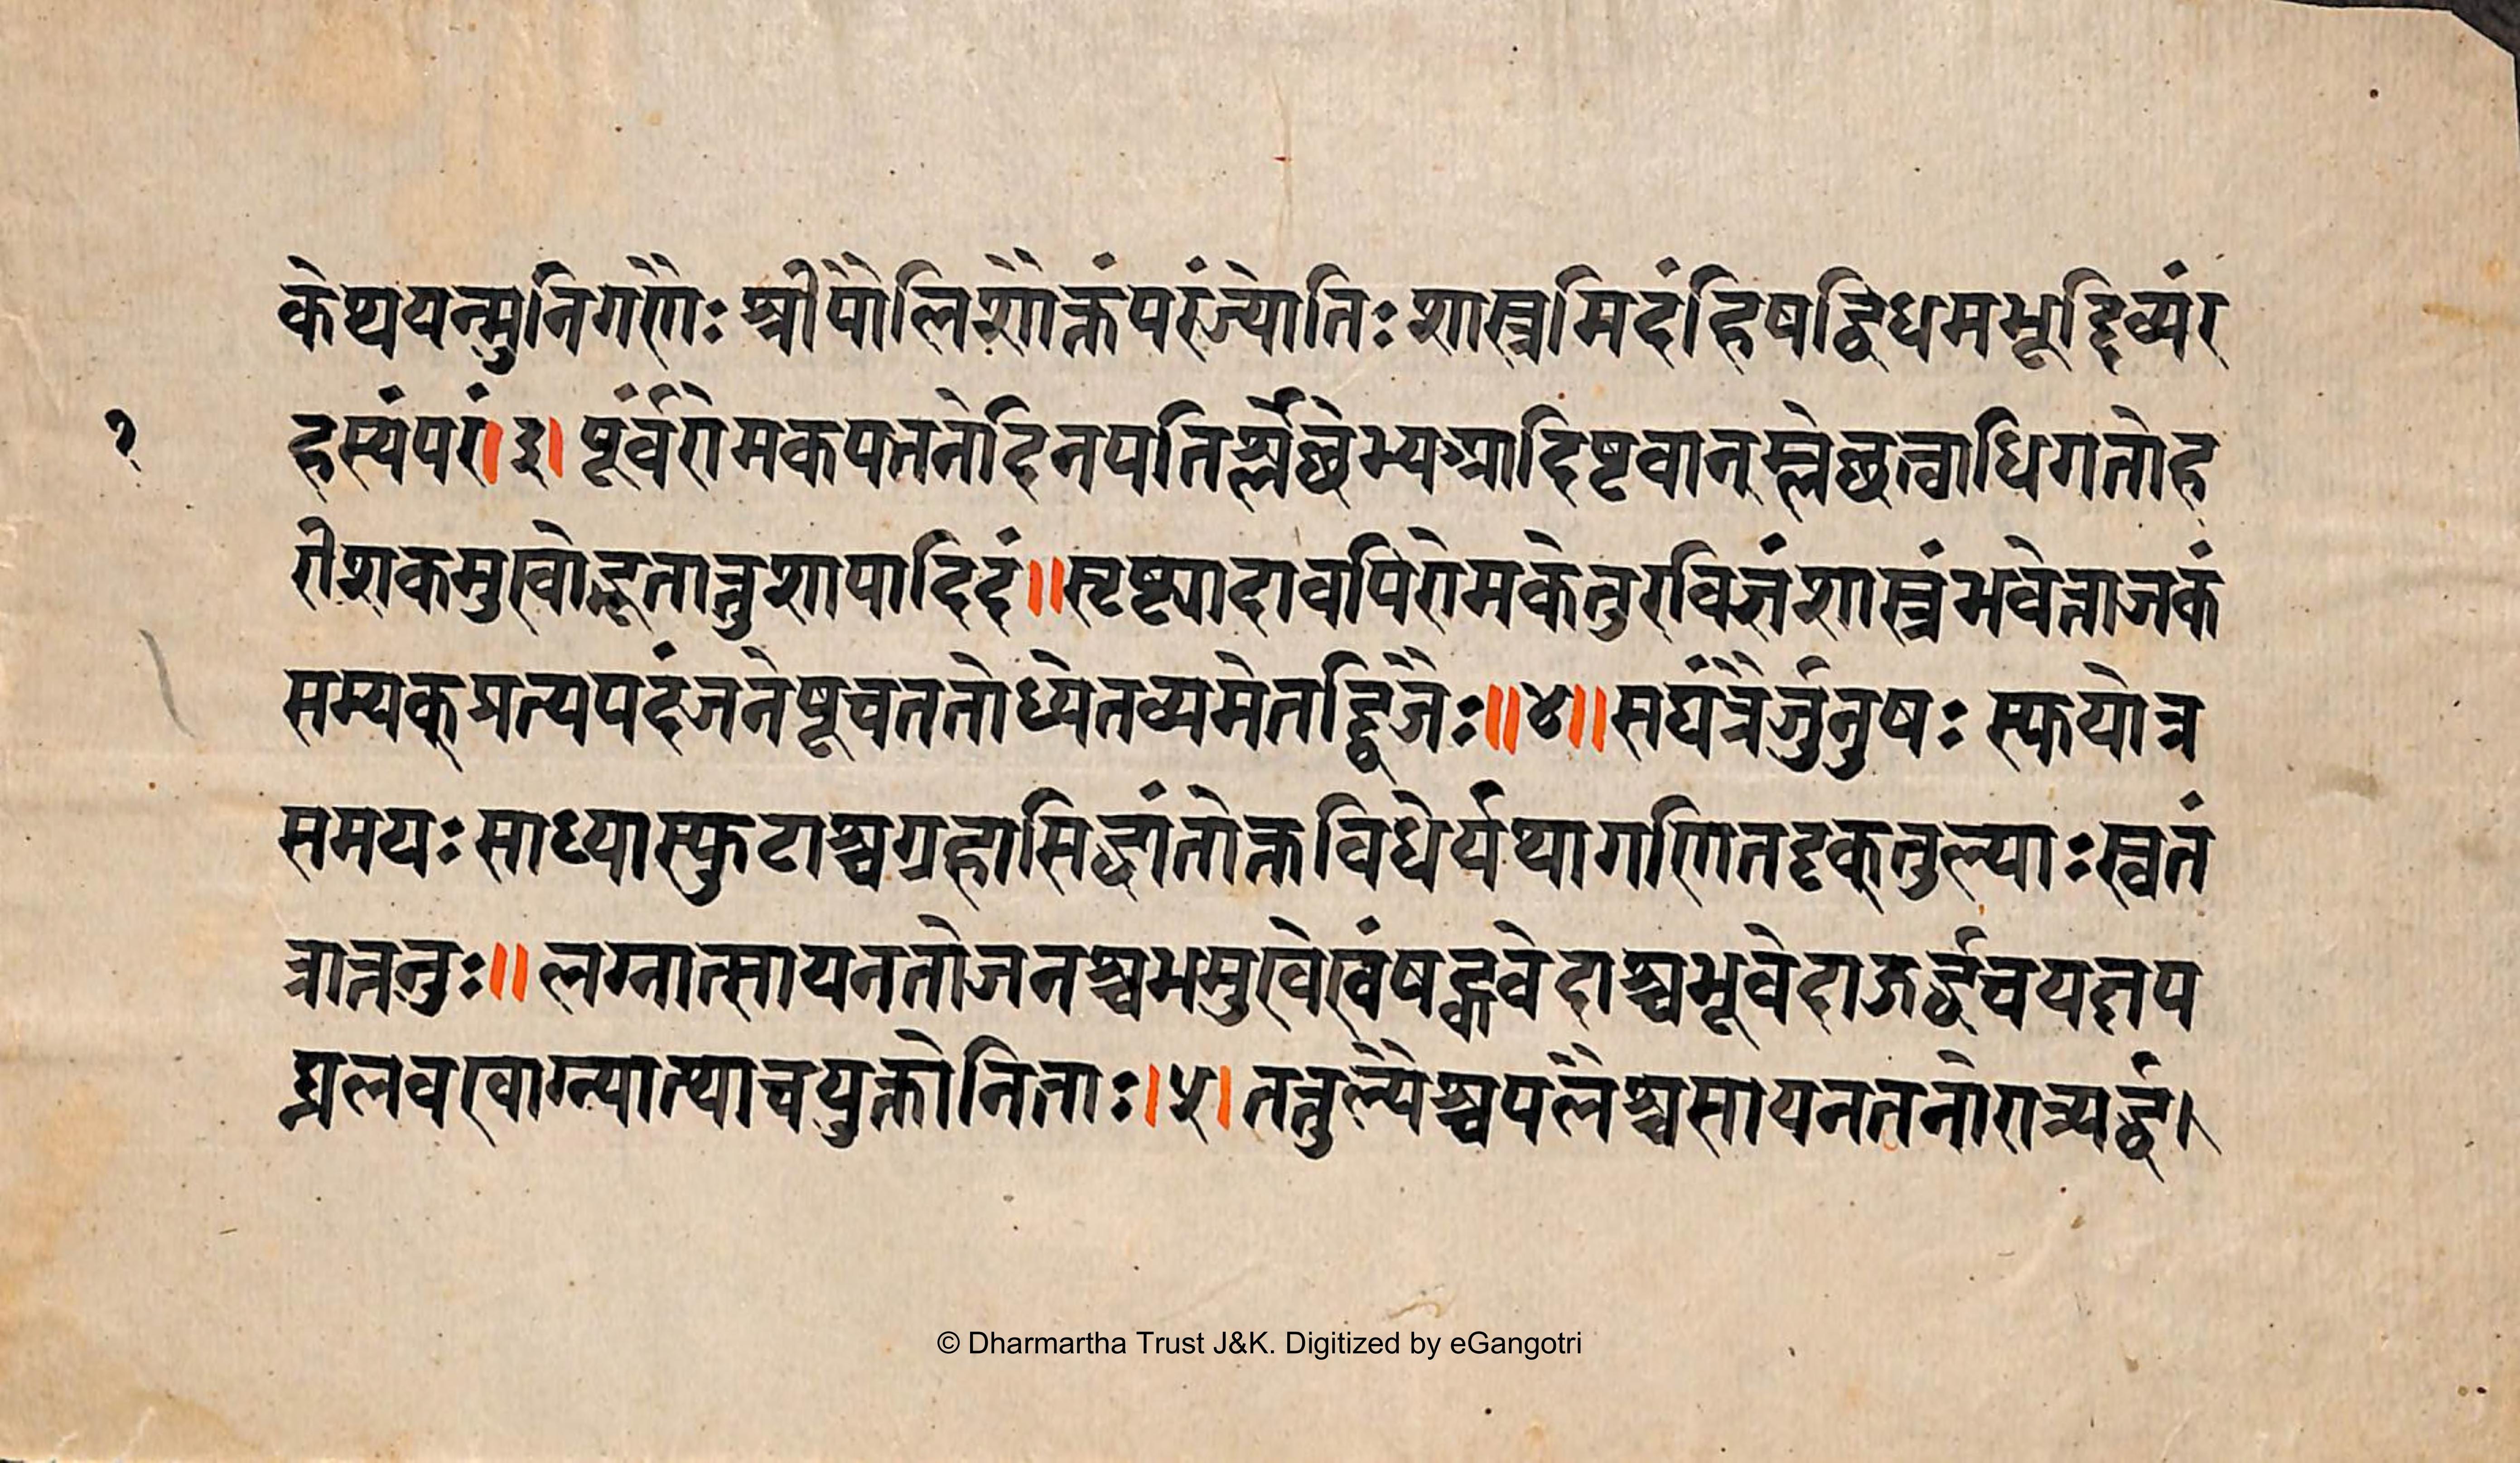 केथ्ययन्मुनिगणैः श्रीपौलिशौक्तं परंज्योतिः शास्त्रमिदंहिषद्विधमभूद्दिव्यंर
हस्यंपरं। ३। पूंर्वरोमकपत्तनोदिनपतिर्म्लेछेभ्यआदिष्टवान् म्लेछत्वाधिगतोह
१
रीशकमुखोद्भूतात्नुशापादिदं॥सृष्ट्यादावपिरोमकेतुरविजंशास्त्रंभवेत्ताजकं
सम्यक् प्रत्यपदंजनेषूचततोध्येतव्यमेतद्द्विजैः॥४॥सघंत्रैर्जुनुषः स्फयोत्र
समयः साध्यास्फुटाश्चग्रहासिद्धांतोक्तविधेर्यथागणितदृक् तुल्याः स्वतं
त्रात्ननुः॥ लग्नात्सायनतोजनश्चभमुखेखंषड्गवेदाश्चभूवेदाऊर्द्धचयद्दृतप
घ्नलवखाग्न्यात्प्याचयुक्तोनिताः।५। तत्तुल्यैश्चपलैश्चसायनतनोरात्र्यर्द्ध।
© Dharmartha Trust J&K. Digitized by eGangotri